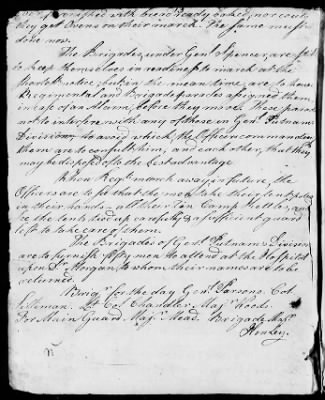 furnished with bread ready baked, nor can
they get Ovens on their march. The same must
be done now.
The Brigades, under Genl. Spencer, are
to keep themselves in readiness to march at the
shortest notice, but in the mean time are to have
Regimental and Brigade parades assigned them
in case of an Alarm, before they move. These parades
not to interfere with any of those in Genl. Putnam's
Division; to avoid which the Officer commanding
them are to consult him, and each other, that they
may be disposed to the best advantage.
When Regts. march away in future, the
Officers are to see that the men take their tent poles
in their hands all their Tin Camp Kettles, and
see the tents tied up carefully & a sufficient guard
left to take care of them.
The Brigades of Genl. Putnam's Division
are to furnish fifty men to attend at the Hospital
upon Dr. Morgan, to whom their names are to be
returned.
Brigr. for the day Genl. Parsons. Col.
Silleman. Lt. Col. Chandler. Majr.
For Main Guard, Majr. Mead. Brigade Majr.
Henley.